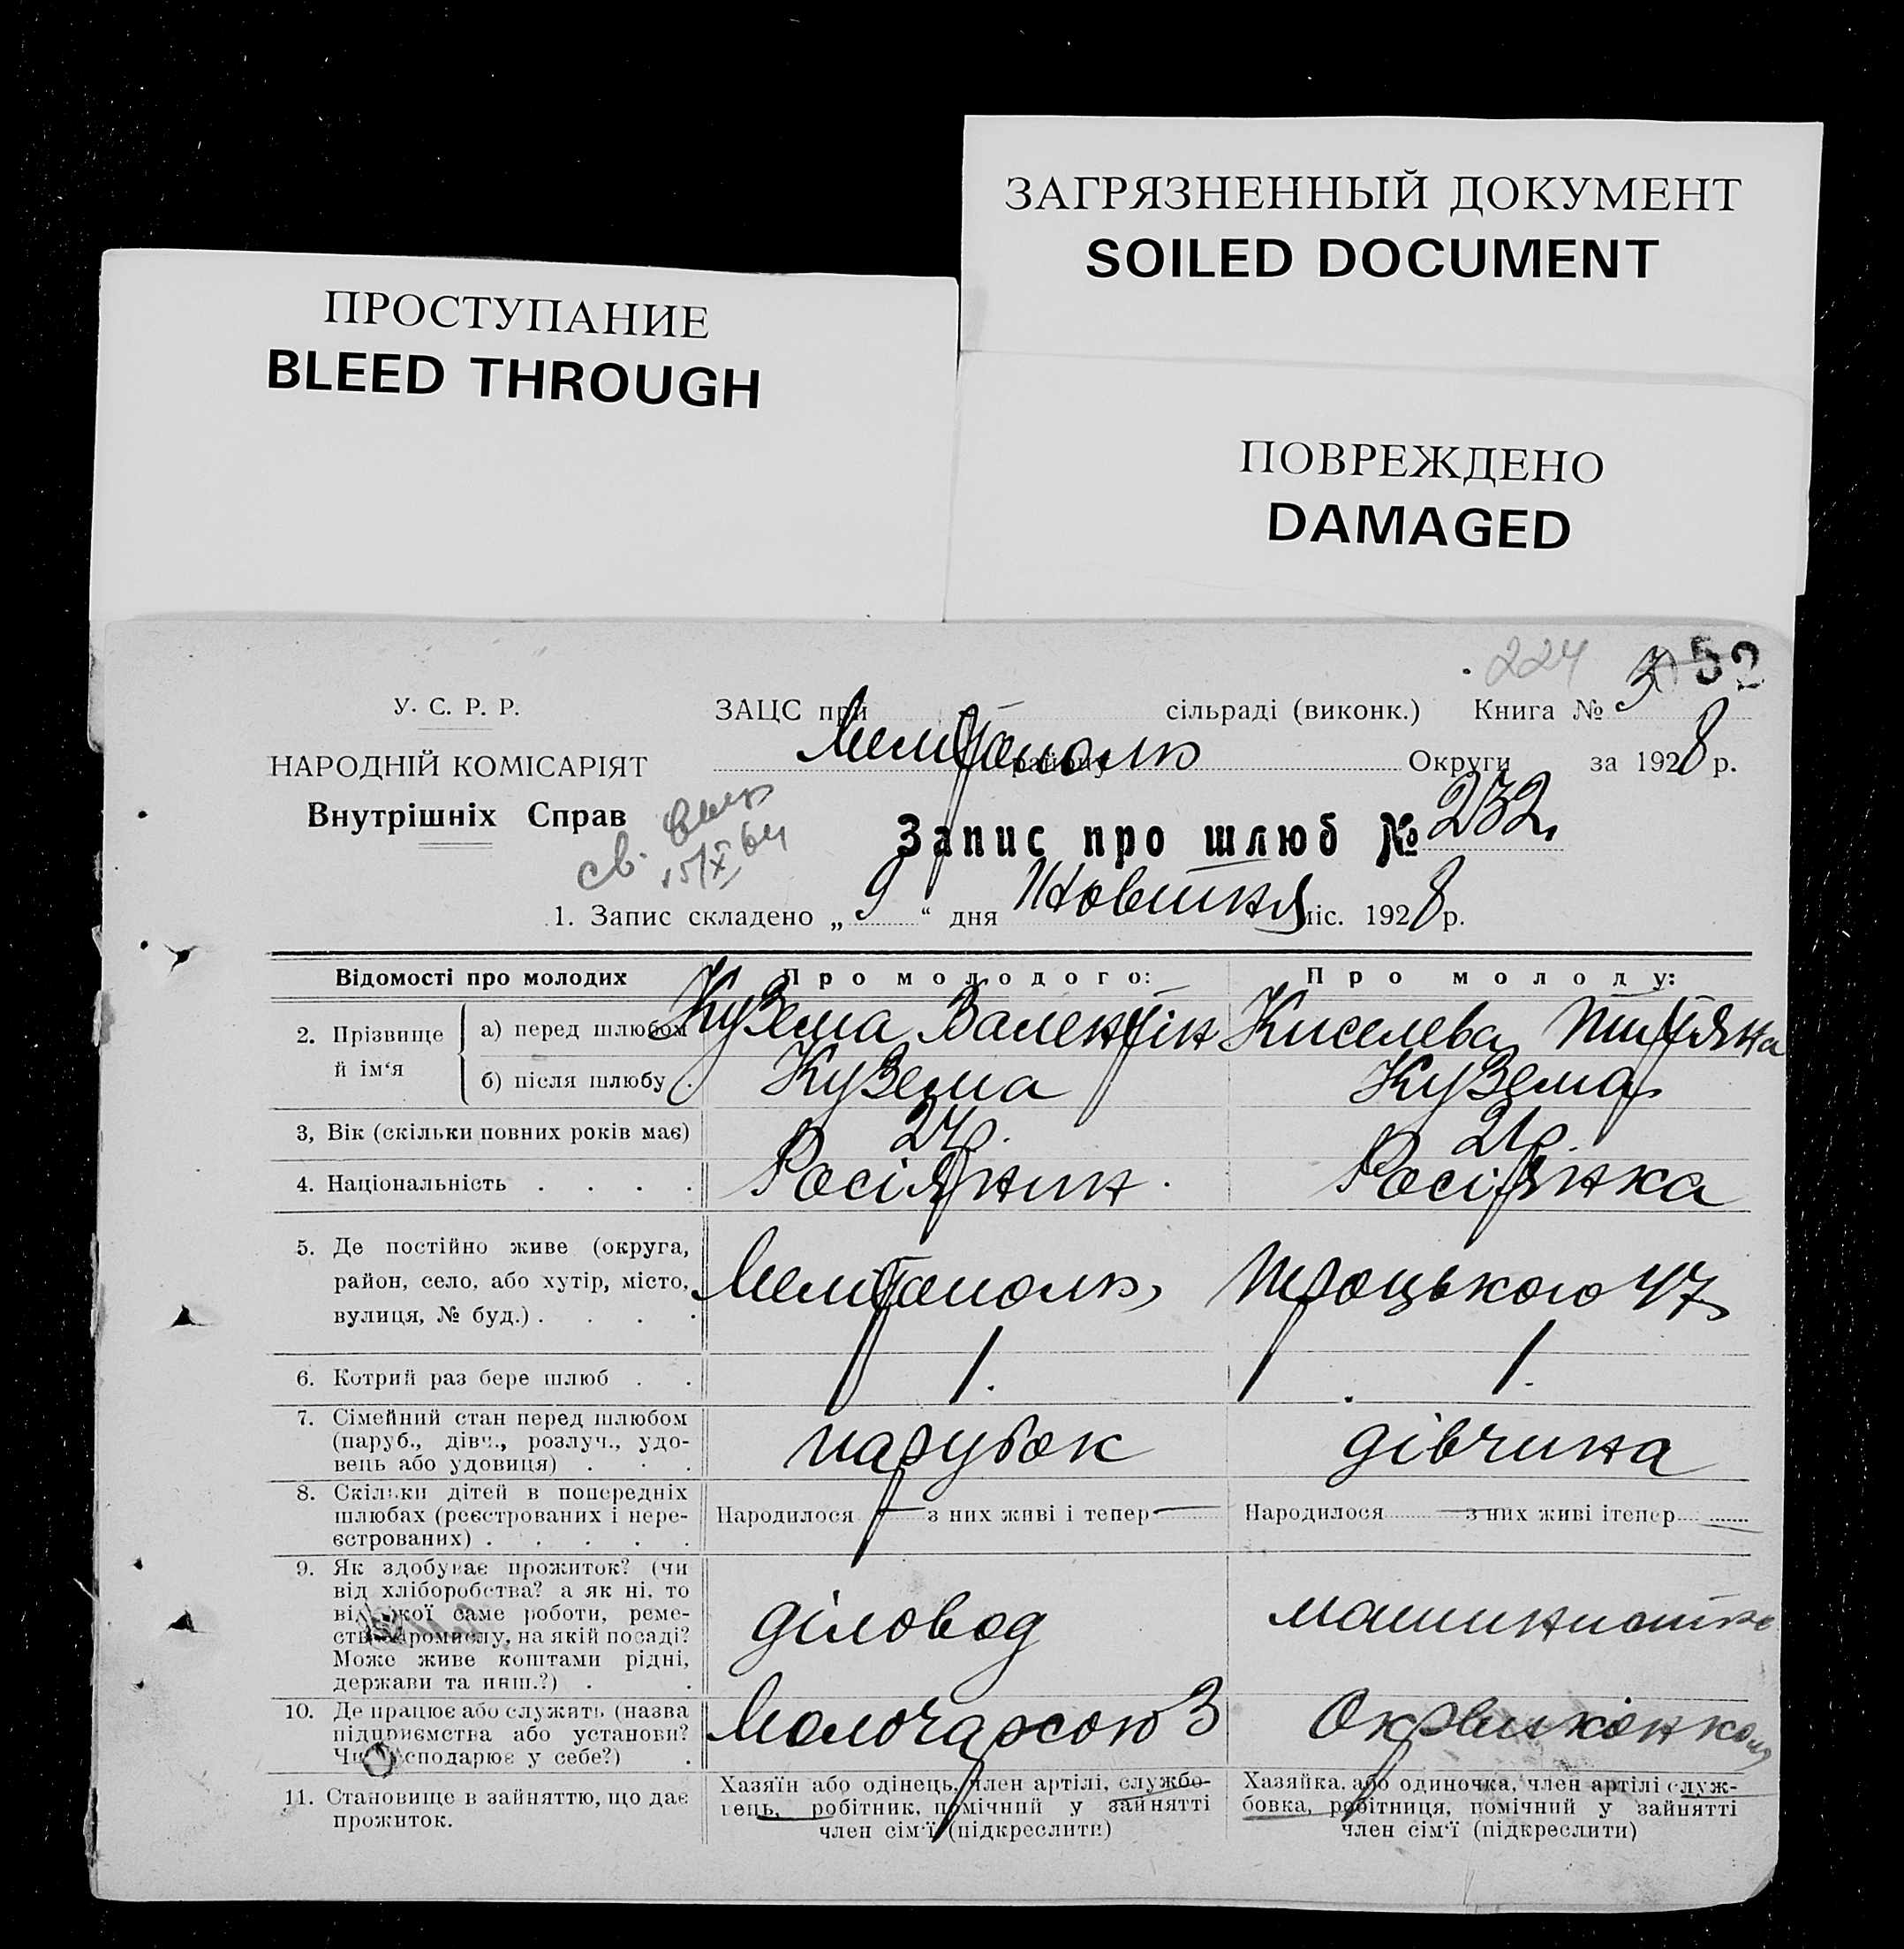 ЗАГРЯЗНЕННЫЙ ДОКУМЕНТ
SOILED DOCUMENT
ПРОСТУПАНИЕ
BLEED THROUGH
ПОВРЕЖДЕНО
DAMAGED
224
У. С. Р. Р.
НАРОДНІЙ КОМІСАРІЯТ
Внутрішніх Справ
св. 15/X 64
ЗАЦС при сільраді (виконк.) Книга № 3
Мелітополь району Округи за 1928 р.
Запис про шлюб № 232
1. Запис складено „ 9 “ дня Жовтня міс. 1928 р.
Відомості про молодих Про молодого: Про молоду:
2. Прізвище й ім‘я
а) перед шлюбом Куземa Валентін Киселева
б) після шлюбу Кузема Кузема
3, Вік (скільки повних років має) 24 р. 21 р.
4. Національність Росіянин. Росіянка
5. Де постійно живе (округа,
район, село, або хутір, місто,
вулиця, № буд.)
Мелітополь, Троцького 47
6. Котрий раз бере шлюб 1. 1.
7. Сімейний стан перед шлюбом
(паруб., дівч., розлуч., удо-
вець або удовиця)
парубок дівчина
8. Скільки дітей в попередніх
шлюбах (реєстрованих і нере-
єстрованих)
Народилося — з них живі і тепер — Народилося — з них живі ітепер —
9. Як здобуває прожиток? (чи
від хліборобства? а як ні, то
від якої саме роботи, реме-
ства, промислу, на якій посаді?
Може живе коштами рідні,
держави та инш.?)
діловод машиністка
10. Де працює або служить (назва
підприємства або установи?
Чи господарює у себе?)
Молочарсоюз Окрвиконком
11. Становище в зайняттю, що дає
прожиток.
Хазяїн або одінець, член артілі, службо-
вець, робітник, помічний у зайнятті
член сім‘ї (підкреслити)
Хазяйка, або одиночка, член артілі служ-
бовка, робітниця, помічний у зайнятті
член сім‘ї (підкреслити)